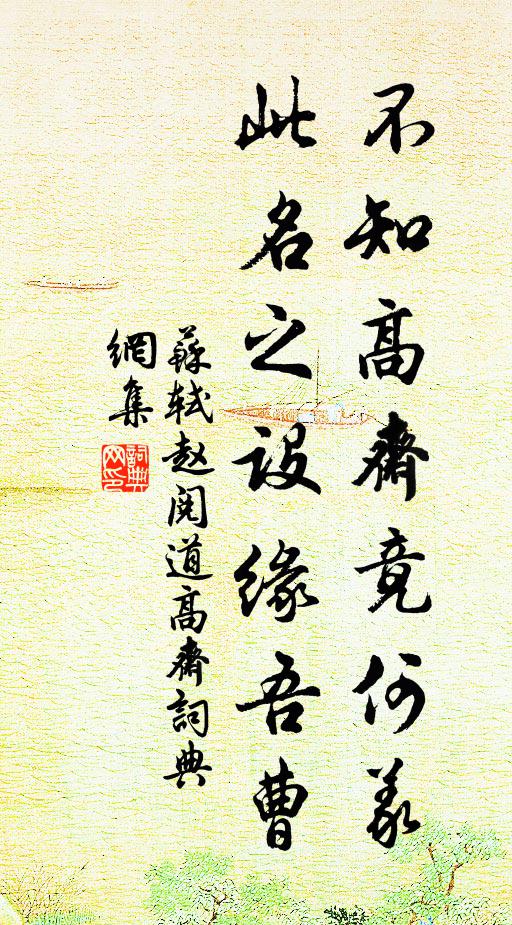 不知高齋竟何義
此名之設緣吾曹
蘇軾赵阅道高齋詞典
網集
詞典
网印